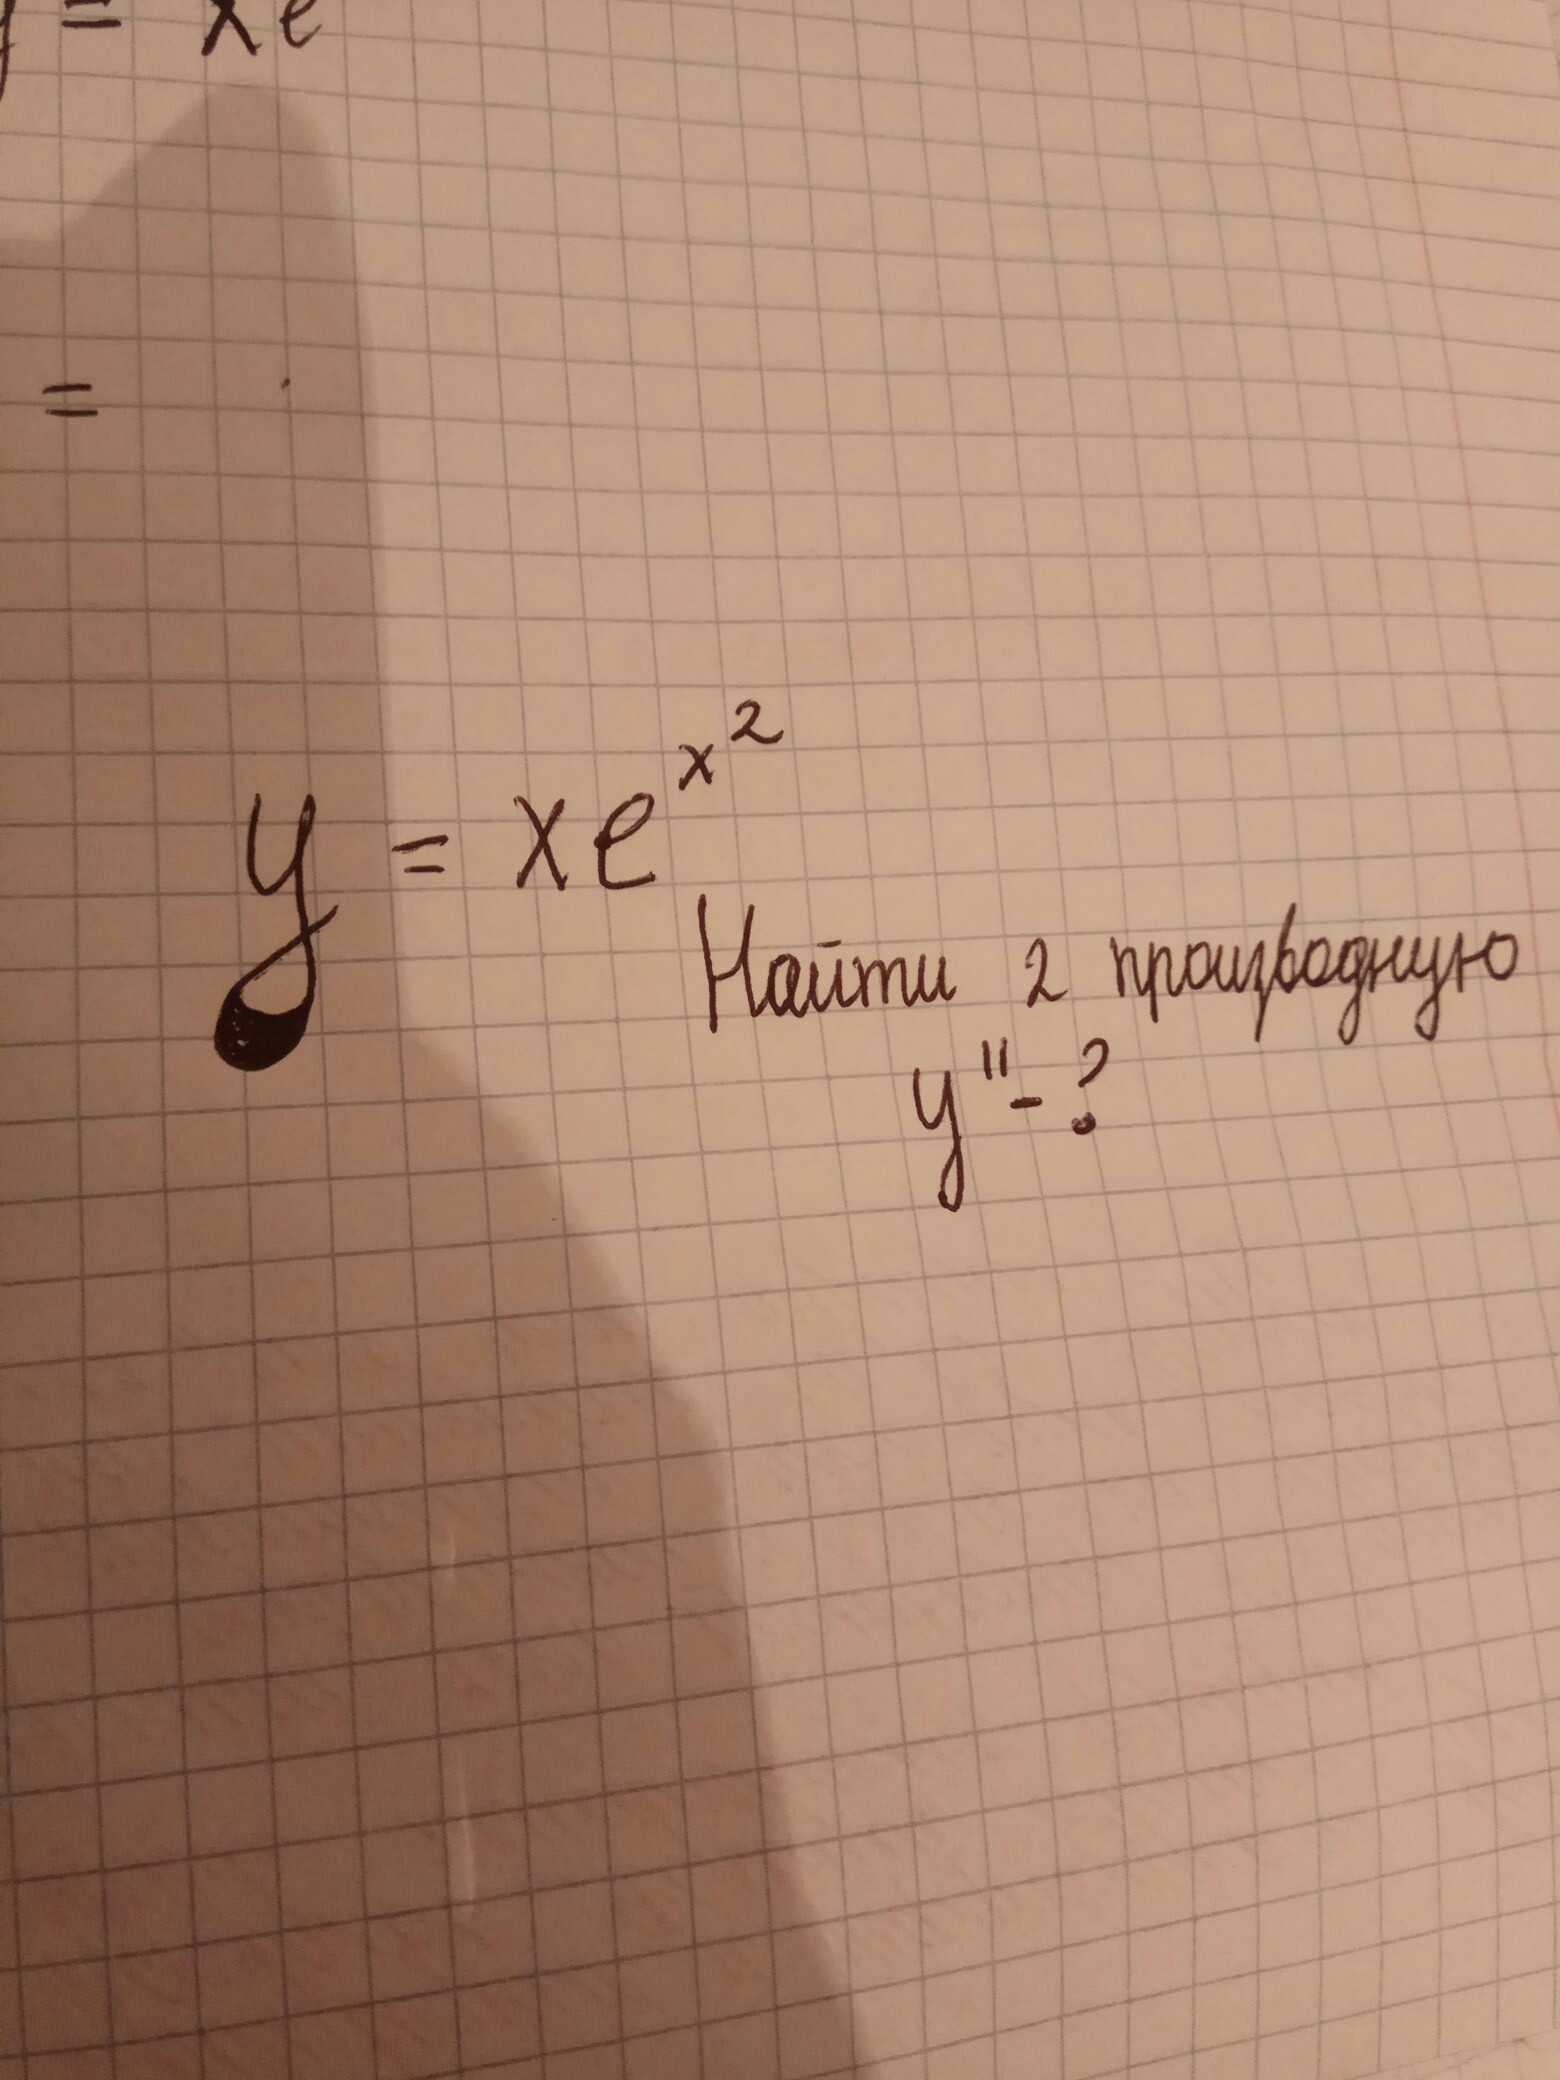 y = xe
=
y = xe^{x^2}
Найти 2 производную
y'' - ?